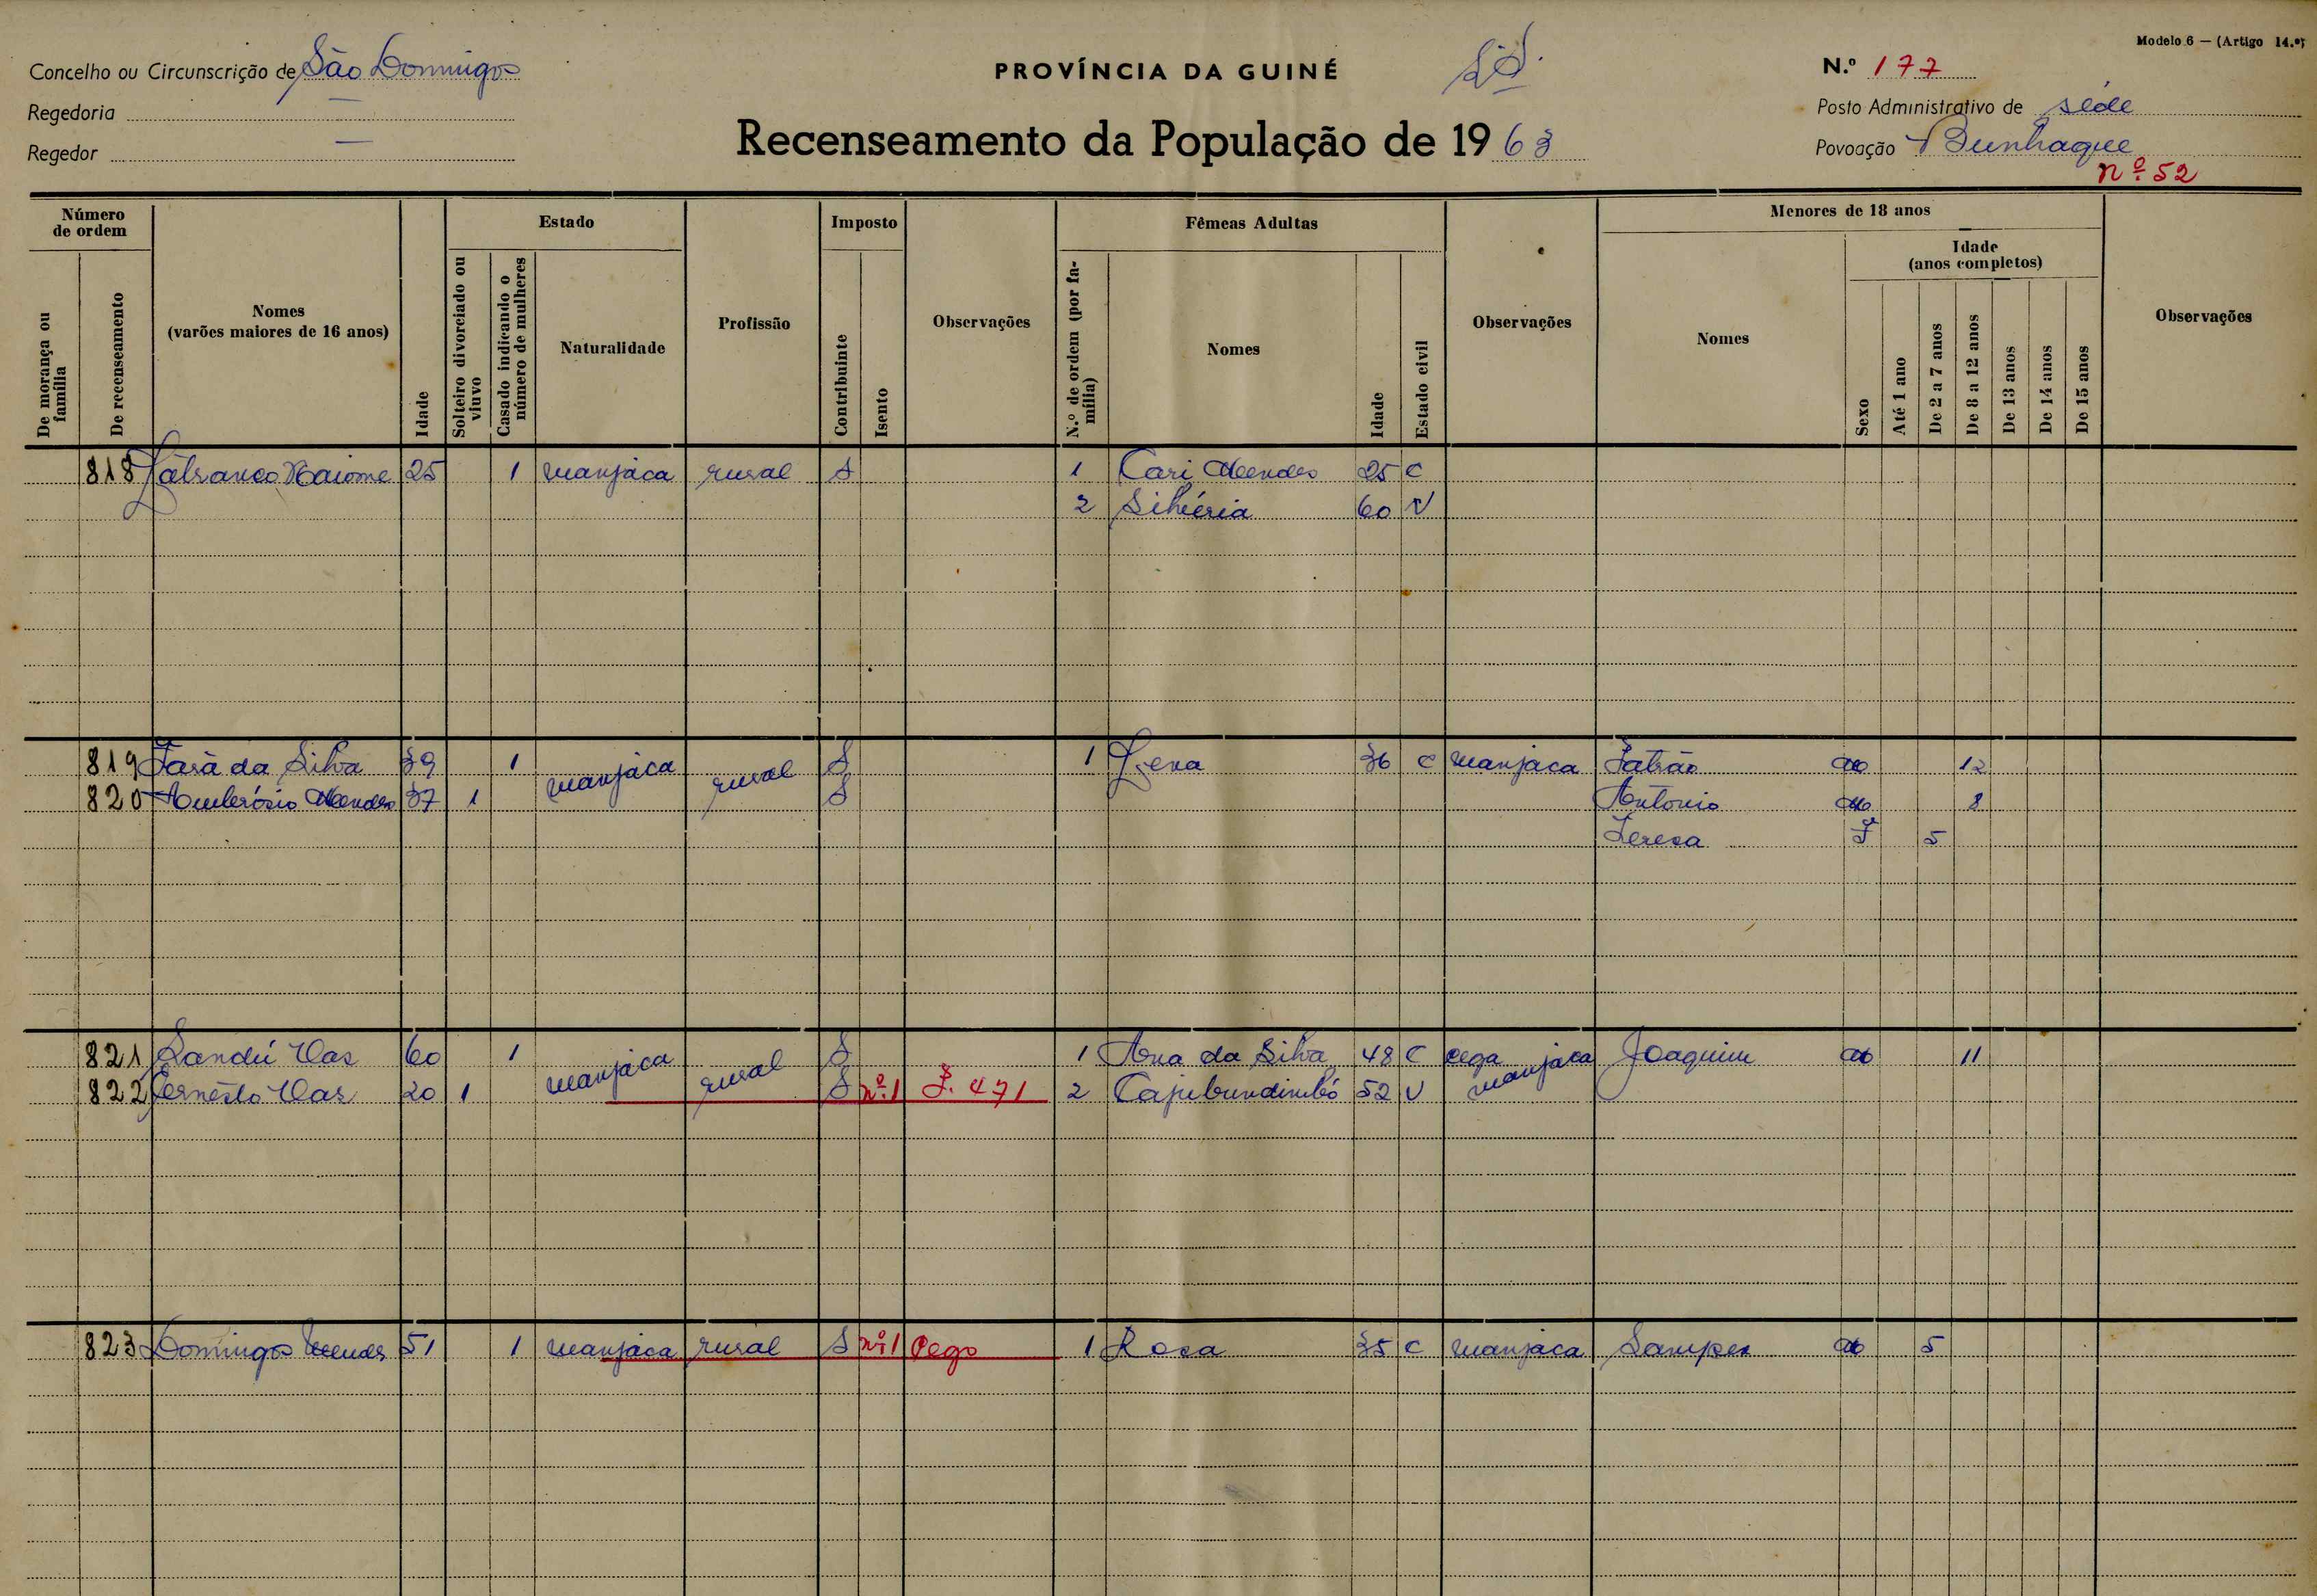 Modelo 6 — (Artigo 14.º)
Concelho ou Circunscrição de São Domingos
PROVÍNCIA DA GUINÉ
N.º 177
Regedoria —
Posto Administrativo de séde
Regedor —
Recenseamento da População de 1963
Povoação Bunhaque
nº 52
Número de ordem
De morança ou família
De recenseamento
Nomes
(varões maiores de 16 anos)
Idade
Estado
Solteiro divorciado ou viuvo
Casado indicando o número de mulheres
Naturalidade
Profissão
Imposto
Contribuinte
Isento
Observações
Fêmeas Adultas
N.º de ordem (por família)
Nomes
Idade
Estado civil
Observações
Menores de 18 anos
Nomes
Sexo
Idade
(anos completos)
Até 1 ano
De 2 a 7 anos
De 8 a 12 anos
De 13 anos
De 14 anos
De 15 anos
Observações
818 25 1 manjaca rural S 1 Cari Mendes 25 C
2 60 V
819 da Silva 39 1 manjaca rural S 1 36 C manjaca M 12
820 Ambrósio Mendes 37 1 S Antonio M 8
Teresa F 5
821 Sandú Vaz 60 1 manjaca rural S 1 Ana da Silva 48 C cega manjaca Joaquim M 11
822 Ernesto Vaz 20 1 S nº 1 J. 471 2 52 V
823 Domingos Mendes 51 1 manjaca rural S nº 1 Cego 1 Rosa 35 C manjaca M 5